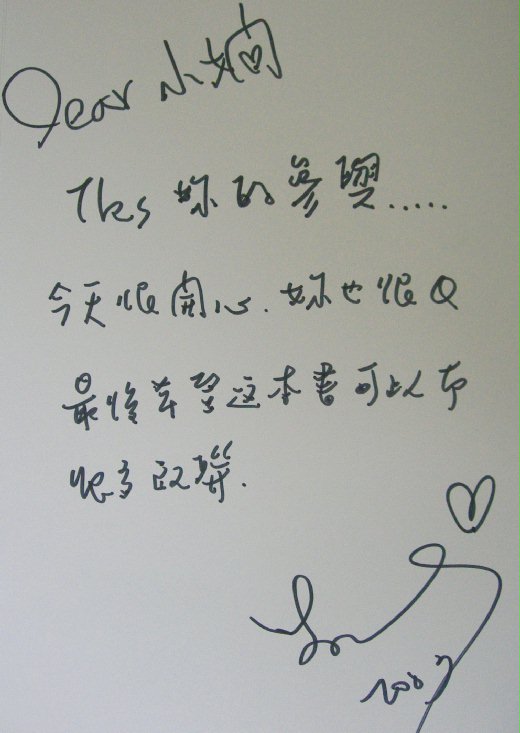 Dear 小嫻
Tks 妳的參與.....
今天很開心. 妳也很Q
最後希望这本書可以
很多
2007